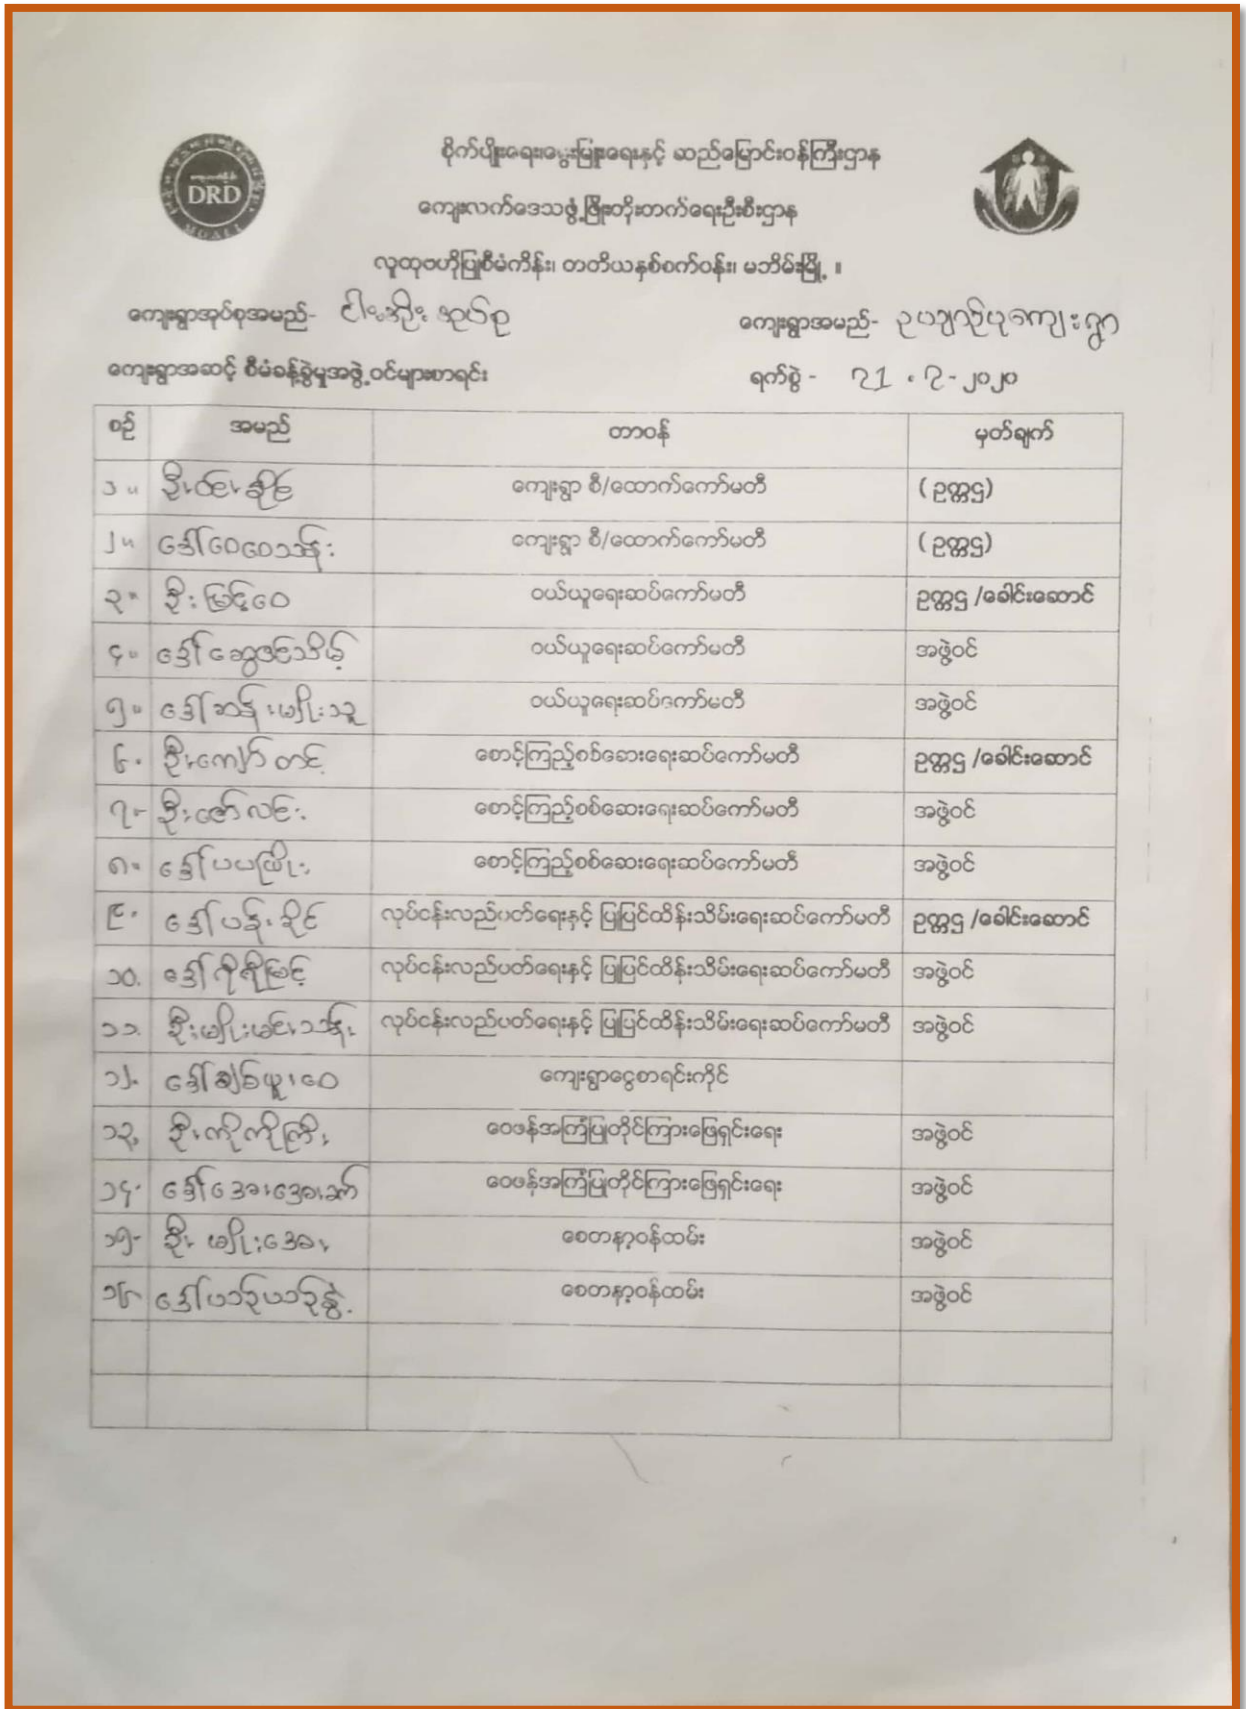 DRD
စိုက်ပျိုးရေး၊မွေးမြူရေးနှင့် ဆည်မြောင်းဝန်ကြီးဌာန
ကျေးလက်ဒေသဖွံ့ဖြိုးတိုးတက်ရေးဦးစီးဌာန
လူထုဗဟိုပြုစီမံကိန်း၊ တတိယနှစ်စက်ဝန်း၊ မဘိမ်းမြို့ ။
ကျေးရွာအုပ်စုအမည်- ငါးအိုး အုပ်စု
ကျေးရွာအမည်- ဥယျာဉ်ပုကျေးရွာ
ကျေးရွာအဆင့် စီမံခန့်ခွဲမှုအဖွဲ့ဝင်များစာရင်း
ရက်စွဲ - ၂၁.၇-၂၀၂၀
စဉ် အမည် တာဝန် မှတ်ချက်
၁။ ဦးဝင်းဆိုင် ကျေးရွာ စီ/ထောက်ကော်မတီ (ဥက္ကဌ)
၂။ ဒေါ်ဝေဝေသန်း ကျေးရွာ စီ/ထောက်ကော်မတီ (ဥက္ကဌ)
၃။ ဦးမြင့်ဝေ ဝယ်ယူရေးဆပ်ကော်မတီ ဥက္ကဌ /ခေါင်းဆောင်
၄။ ဒေါ်ဆွေဇင်သိမ့် ဝယ်ယူရေးဆပ်ကော်မတီ အဖွဲ့ဝင်
၅။ ဒေါ်ဆန်းမျိုးသူ ဝယ်ယူရေးဆပ်ကော်မတီ အဖွဲ့ဝင်
၆. ဦးကျော်တင့် စောင့်ကြည့်စစ်ဆေးရေးဆပ်ကော်မတီ ဥက္ကဌ /ခေါင်းဆောင်
၇- ဦးဇော်လင်း စောင့်ကြည့်စစ်ဆေးရေးဆပ်ကော်မတီ အဖွဲ့ဝင်
၈။ ဒေါ်ပပဖြိုး စောင့်ကြည့်စစ်ဆေးရေးဆပ်ကော်မတီ အဖွဲ့ဝင်
၉. ဒေါ်ပန်းခိုင် လုပ်ငန်းလည်ပတ်ရေးနှင့် ပြုပြင်ထိန်းသိမ်းရေးဆပ်ကော်မတီ ဥက္ကဌ /ခေါင်းဆောင်
၁၀. ဒေါ်ကိုကိုမြင့် လုပ်ငန်းလည်ပတ်ရေးနှင့် ပြုပြင်ထိန်းသိမ်းရေးဆပ်ကော်မတီ အဖွဲ့ဝင်
၁၁. ဦးမျိုးမင်းသန်း လုပ်ငန်းလည်ပတ်ရေးနှင့် ပြုပြင်ထိန်းသိမ်းရေးဆပ်ကော်မတီ အဖွဲ့ဝင်
၁၂. ဒေါ်ချစ်ယူဝေ ကျေးရွာငွေစာရင်းကိုင်
၁၃. ဦးကိုကိုကြီး ဝေဖန်အကြံပြုတိုင်ကြားဖြေရှင်းရေး အဖွဲ့ဝင်
၁၄. ဒေါ်အေးအေးဆာ် ဝေဖန်အကြံပြုတိုင်ကြားဖြေရှင်းရေး အဖွဲ့ဝင်
၁၅- ဦးမျိုးအေး စေတနာ့ဝန်ထမ်း အဖွဲ့ဝင်
၁၆- ဒေါ်ယဉ်ယဉ်နွဲ့ စေတနာ့ဝန်ထမ်း အဖွဲ့ဝင်